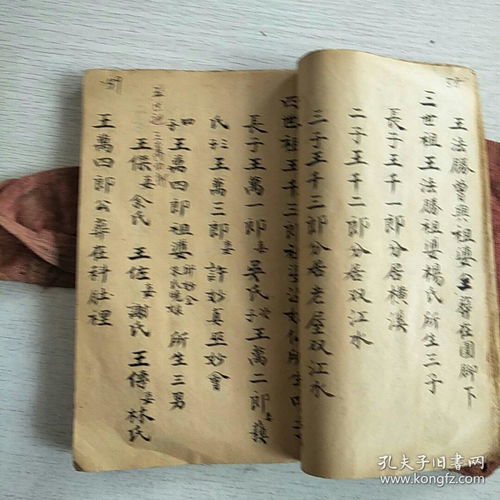 王法勝曾與祖婆王葬在園腳下
三世祖王法勝祖婆楊氏所生三子
長子王千一郎分居橫溪
二子王千二郎分居双江水
三子王千三郎分居老屋双江水
四世祖王千三郎
長子王萬一郎妻吳氏子王萬二郎妻龔
氏三王萬三郎妻許妙真巫妙會
四子王萬四郎祖婆所生三男
王保妻余氏 王佐妻謝氏 王傳妻林氏
王萬四郎公葬在科肚裡
孔夫子旧书网
www.kongfz.com